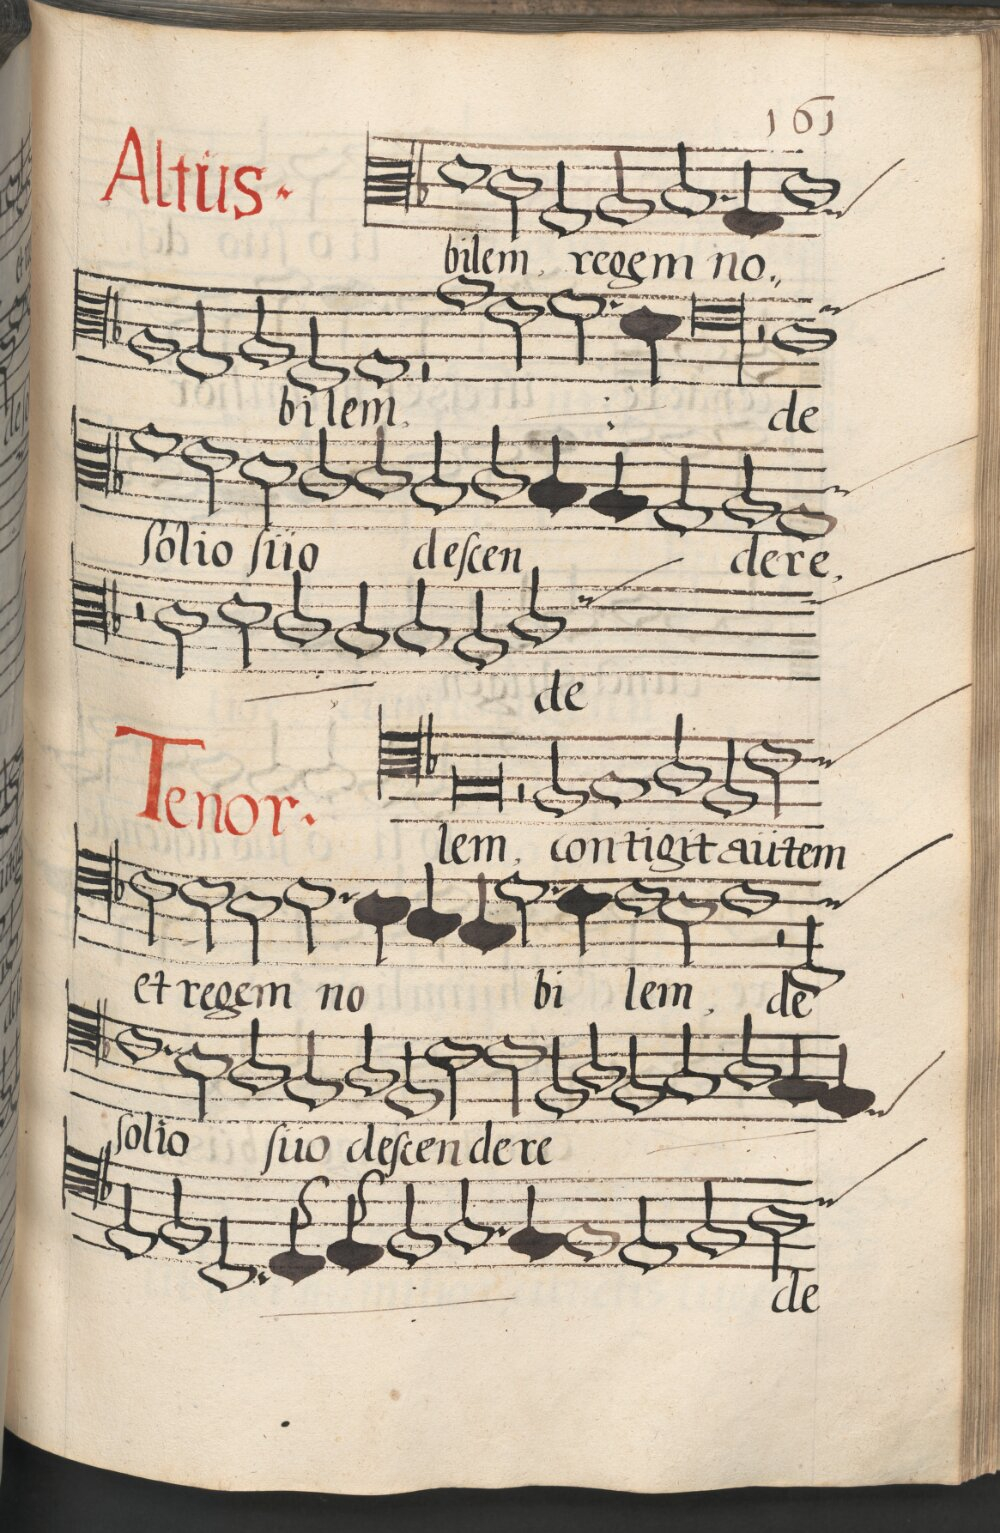 161
Altüs.
bilem, regem no.,
bilem. de
solio süo descen dere,
de
Tenor.
lem, contigit aütem
et regem no bi lem, de
solio süo descendere
de